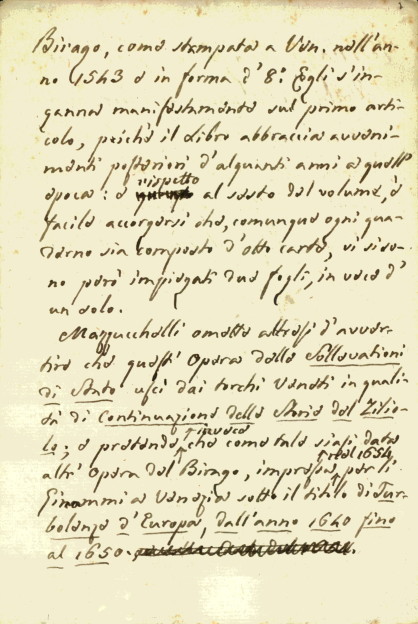 Birago, come stampata a Ven. nell'an-
no 1543 e in forma d' 8.° Egli s'in-
ganna manifestamente sul primo arti-
colo, poichè il Libro abbraccia avveni-
menti posteriori d'alquanti anni a quell'
epoca: e rispetto al sesto del volume, è
facile accorgersi che, comunque ogni qua-
derno sia composto d'otto carte, vi si so-
no però impiegati due fogli, in vece d'
un solo.
Mazzuchelli omette altresì d'avver-
tire che quest' Opera delle Sollevationi
di Stato uscì dai torchi Veneti in quali-
tà di Continuazione delle Storie del Zilio-
lo; e pretende invece che come tale siasi data
altr' Opera del Birago, impressa, nel 1654 per li
Ginammi a Venezia sotto il titolo di Tur-
bolenze d'Europa, dall'anno 1640 fino
al 1650.